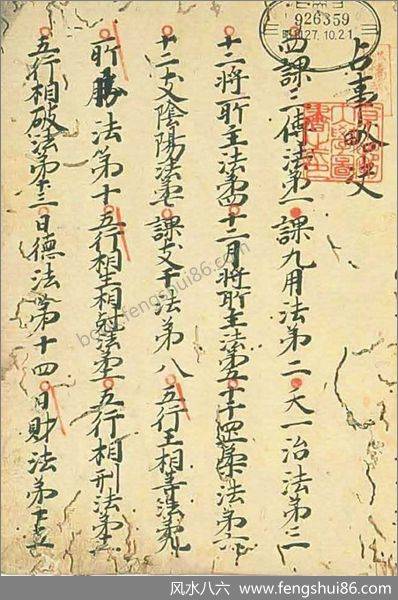 926359
昭和27.10.21
占事略决
四課三傳法第一 課九用法第二 天一治法第三
十二將所主法第四 十二月將所主法第五 十干剛柔法第六
十二支陰陽法第七 課支干法第八 五行王相等法第九
所勝法第十 五行相生相尅法第十一 五行相刑法第十二
五行相破法第十三 日德法第十四 日財法第十五
book.fengshui86.com
风水八六 _ www.fengshui86.com